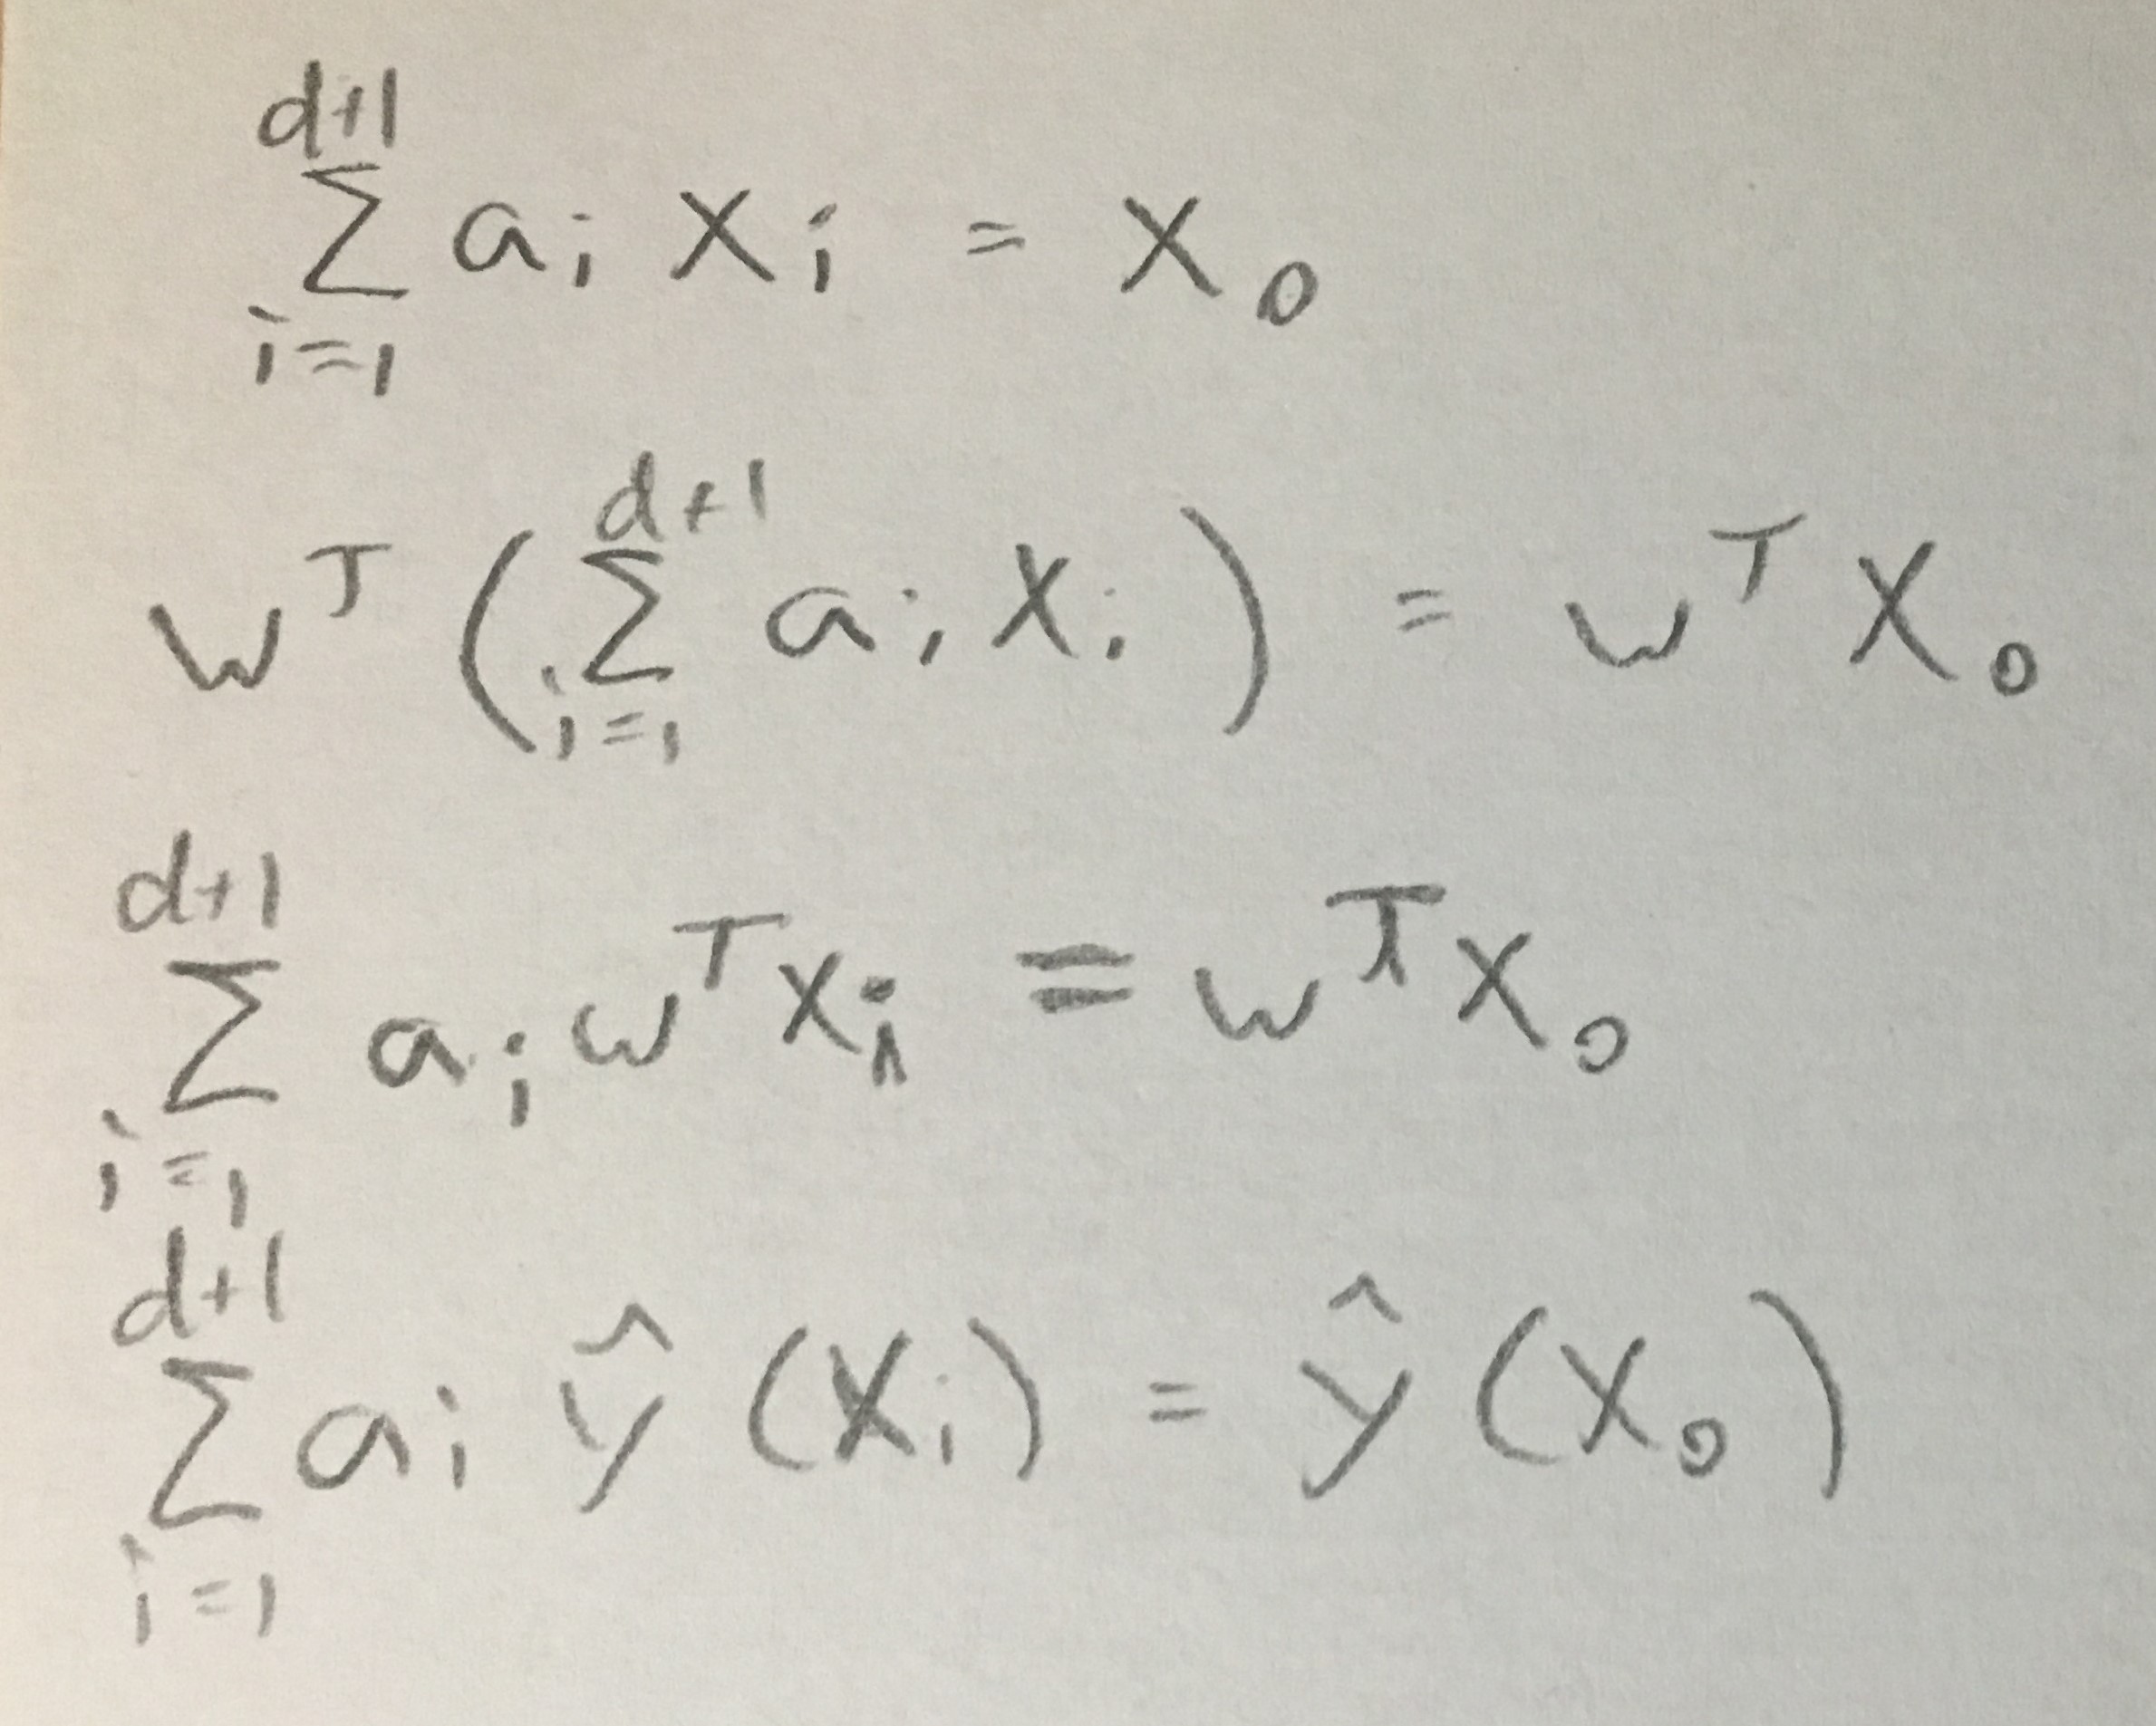 \sum_{i=1}^{d+1} a_i x_i = x_0
w^T \left( \sum_{i=1}^{d+1} a_i x_i \right) = w^T x_0
\sum_{i=1}^{d+1} a_i w^T x_i = w^T x_0
\sum_{i=1}^{d+1} a_i \hat{y}(x_i) = \hat{y}(x_0)